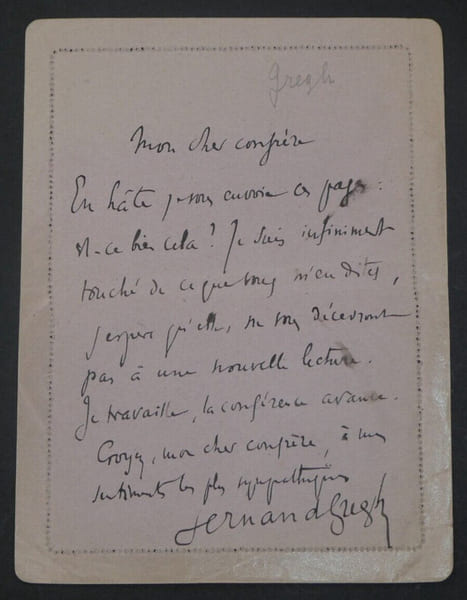 Gregh
Mon cher confrère
En hâte je vous envoie ces pages :
est-ce bien cela ? Je suis infiniment
touché de ce que vous m'en dites,
j'espère qu'elles ne vous décevront
pas à une nouvelle lecture.
Je travaille, la conférence avance.
Croyez, mon cher confrère, à mes
sentiments les plus sympathiques
Fernand Gregh